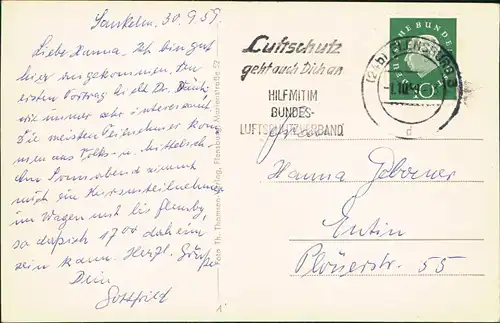 Sankelm. 30.9.59.
Liebe Hanna, Ich bin gut
hier angekommen, den
ersten Vortrag hielt Dr.
wie immer sehr interessant.
Die meisten Teilnehmer kom-
men aus Volks- u. Mittelsch.
Am Sonnabend nimmt
mich ein Kursusteilnehmer
im Wagen mit bis Flensbg,
so daß ich 17 00 daheim
sein kann. Herzl. Grüße
Dein
Gottfried
Foto Th. Thomsen-Verlag, Flensburg, Marienstraße 52
Luftschutz
geht auch Dich an
HILF MIT IM
BUNDES-
LUFTSCHUTZVERBAND
(24b) FLENSBURG 3
-1.10.59
d
DEUTSCHE BUNDESPOST
10
Frau
Hanna
Eutin
Plönerstr. 55